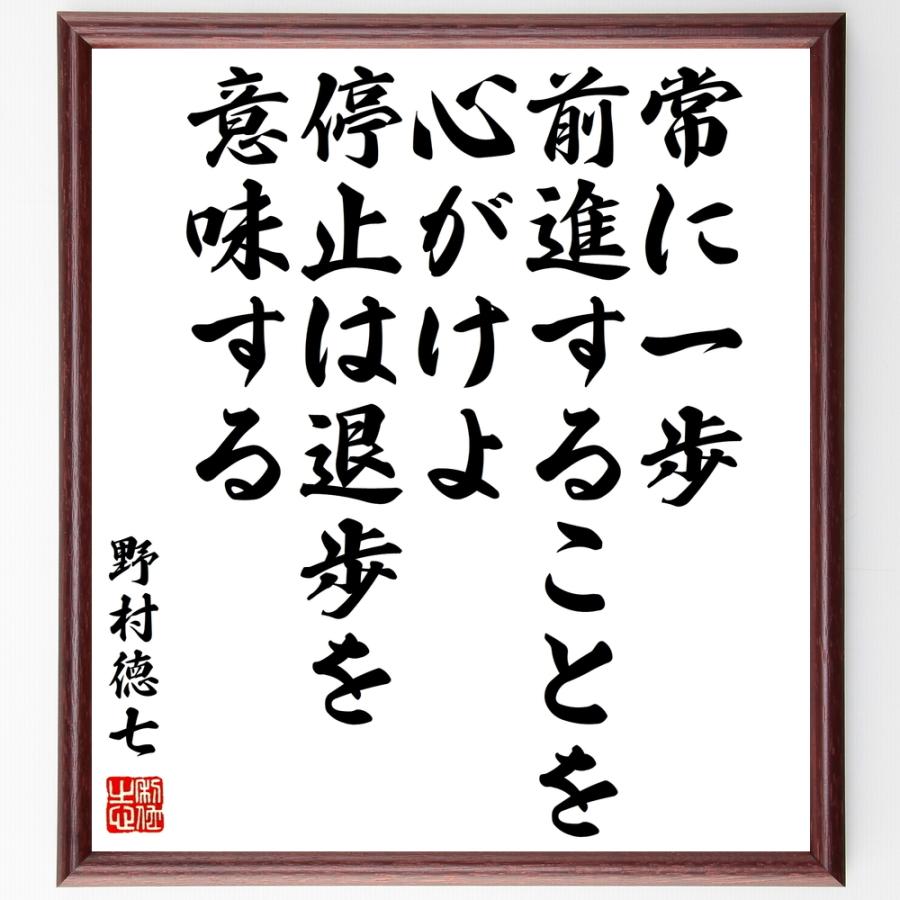 常に一歩
前進することを
心がけよ
停止は退歩を
意味する
野村徳七